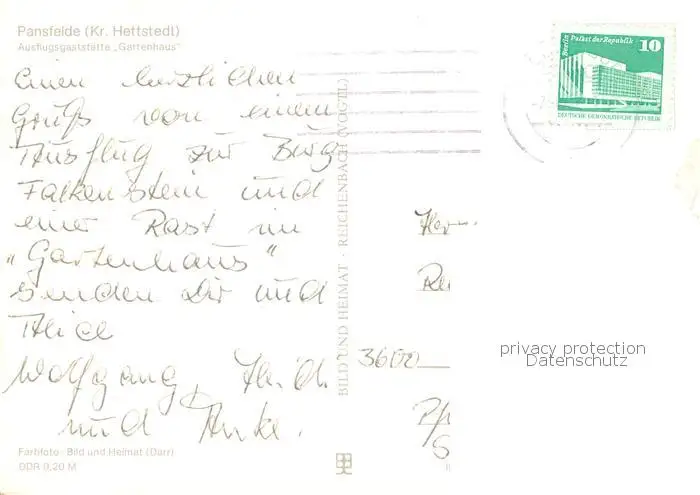 Pansfelde (Kr. Hettstedt)
Ausflugsgaststätte „Gartenhaus"
Einen herzlichen
Gruß von einem
Ausflug zur Burg
Falkenstein und
einer Rast im
„Gartenhaus"
senden Dir und
Alice
Wolfgang,
und Anke.
Farbfoto: Bild und Heimat (Darr)
DDR 0,20 M
BILD UND HEIMAT · REICHENBACH (VOGTL)
Berlin
Palast der Republik
10
DEUTSCHE DEMOKRATISCHE REPUBLIK
3600
privacy protection
Datenschutz